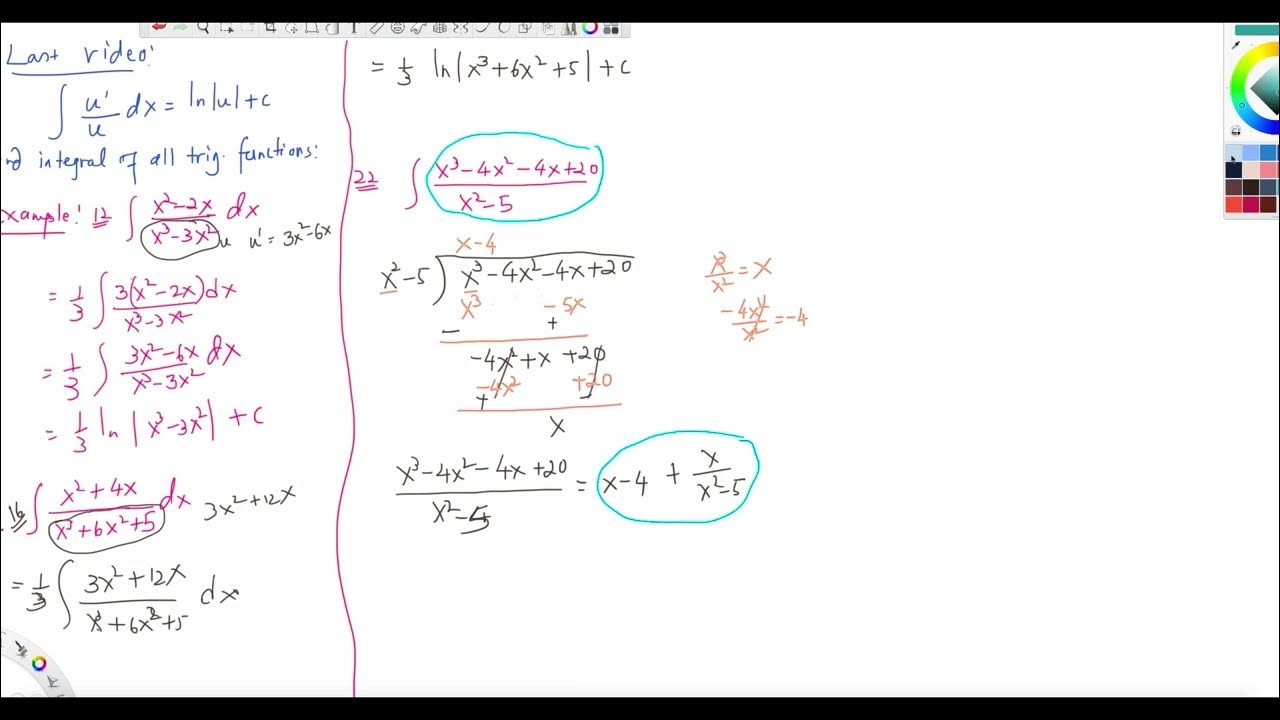 Last video:
∫ u'/u dx = ln|u| + c
nd integral of all trig. functions:
Example: 12 ∫ (x²-2x)/(x³-3x²) dx
u u' = 3x²-6x
= 1/3 ∫ 3(x²-2x)dx/(x³-3x²)
= 1/3 ∫ (3x²-6x)/(x³-3x²) dx
= 1/3 ln |x³-3x²| + c
16 ∫ (x²+4x)/(x³+6x²+5) dx 3x²+12x
= 1/3 ∫ (3x²+12x)/(x³+6x²+5) dx
= 1/3 ln|x³+6x²+5| + c
22 ∫ (x³-4x²-4x+20)/(x²-5)
x-4
x²-5 ) x³-4x²-4x+20
x³ -5x
- +
-4x²+x+20
-4x² +20
+ -
x
x³/x² = x
-4x²/x² = -4
(x³-4x²-4x+20)/(x²-5) = x-4 + x/(x²-5)